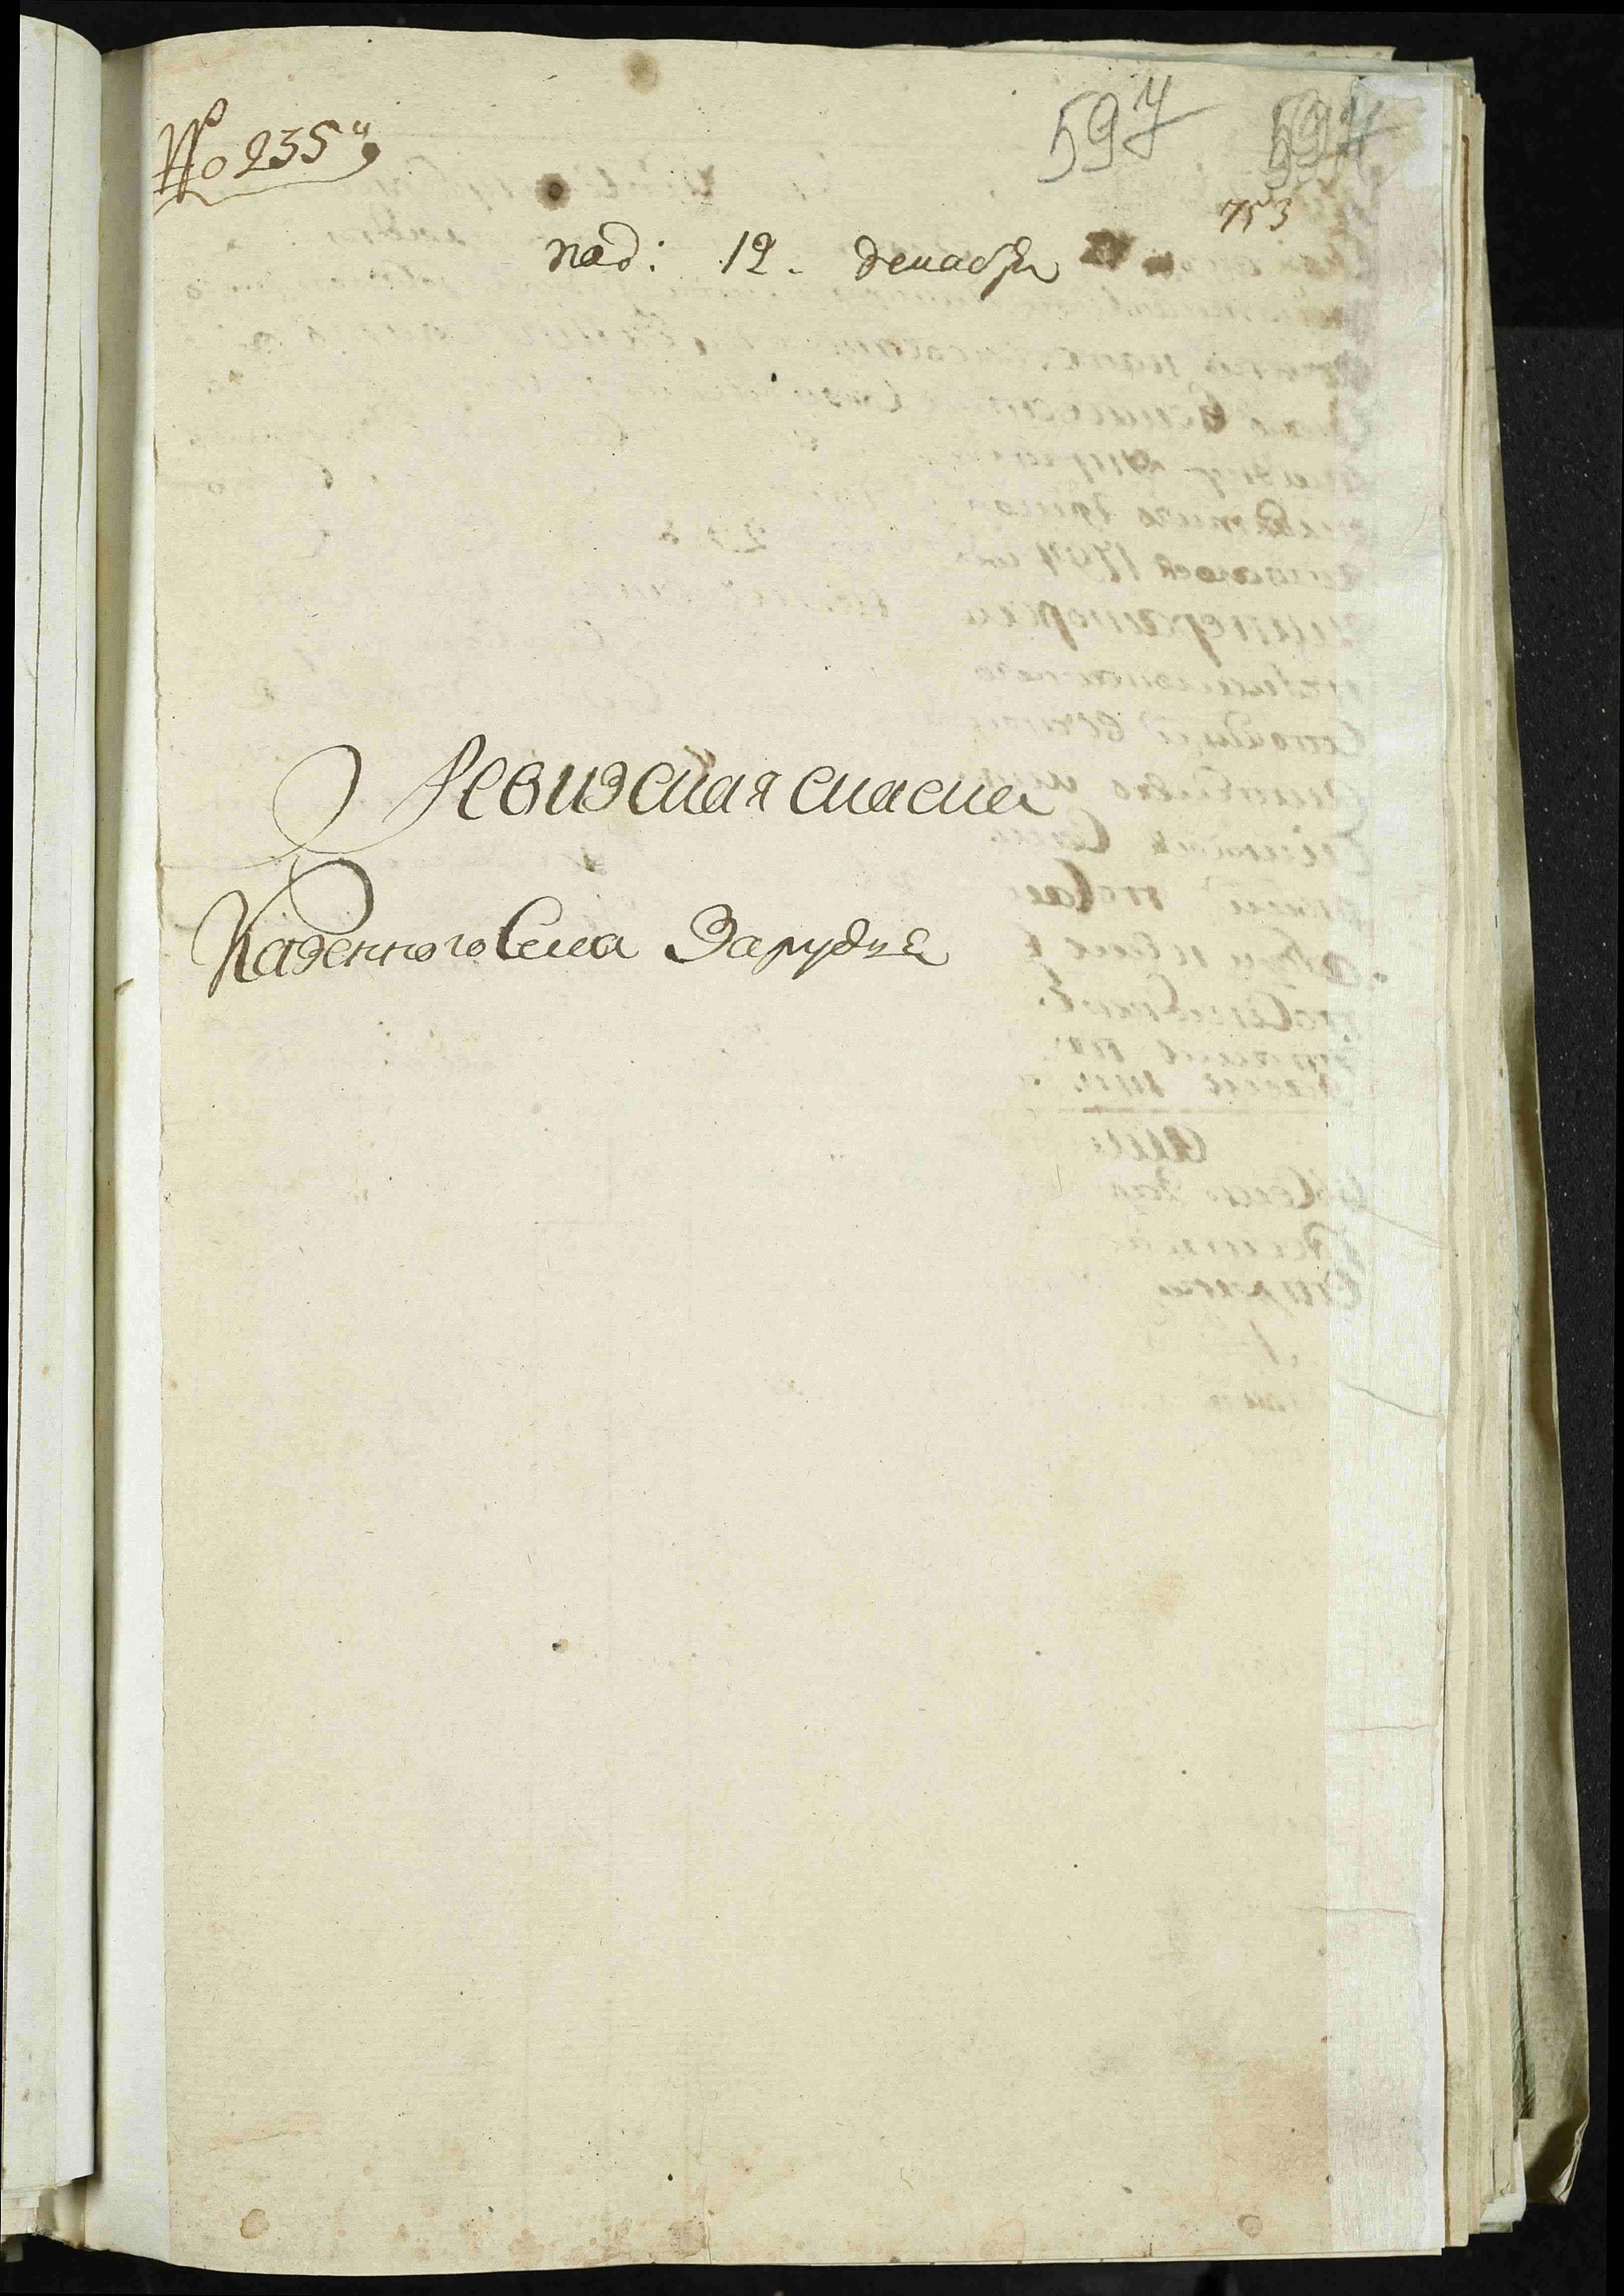 № 235
597 597
753
под: 12. декабря
Ревизская скаска
Казенного Села Зарудья